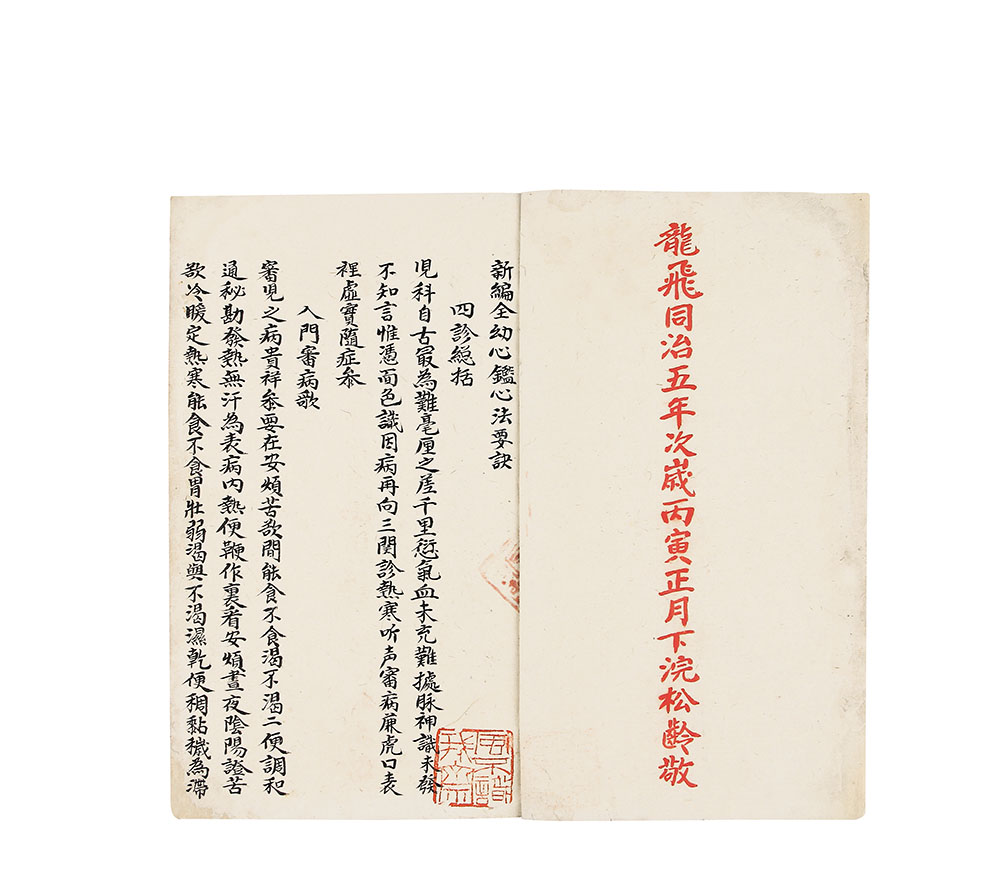 龍飛同治五年次嵗丙寅正月下浣松齡敬
新編全幼心鑑心法要訣
四診縂括
児科自古最為難毫厘之差千里愆氣血未充難㨿脉神識未發
不知言惟憑面色識因病再向三関診熱寒听声審病蒹虎口表
裡虛實隨症叅
入門審病歌
審児之病貴祥叅要在安煩苦欲間能食不食渴不渴二便調和
通秘勘發熱無汗為表病内熱便鞕作裏看安煩晝夜陰陽證苦
欲冷暖定熱寒能食不食胃壯弱渴與不渴濕乾便稠黏穢為滯